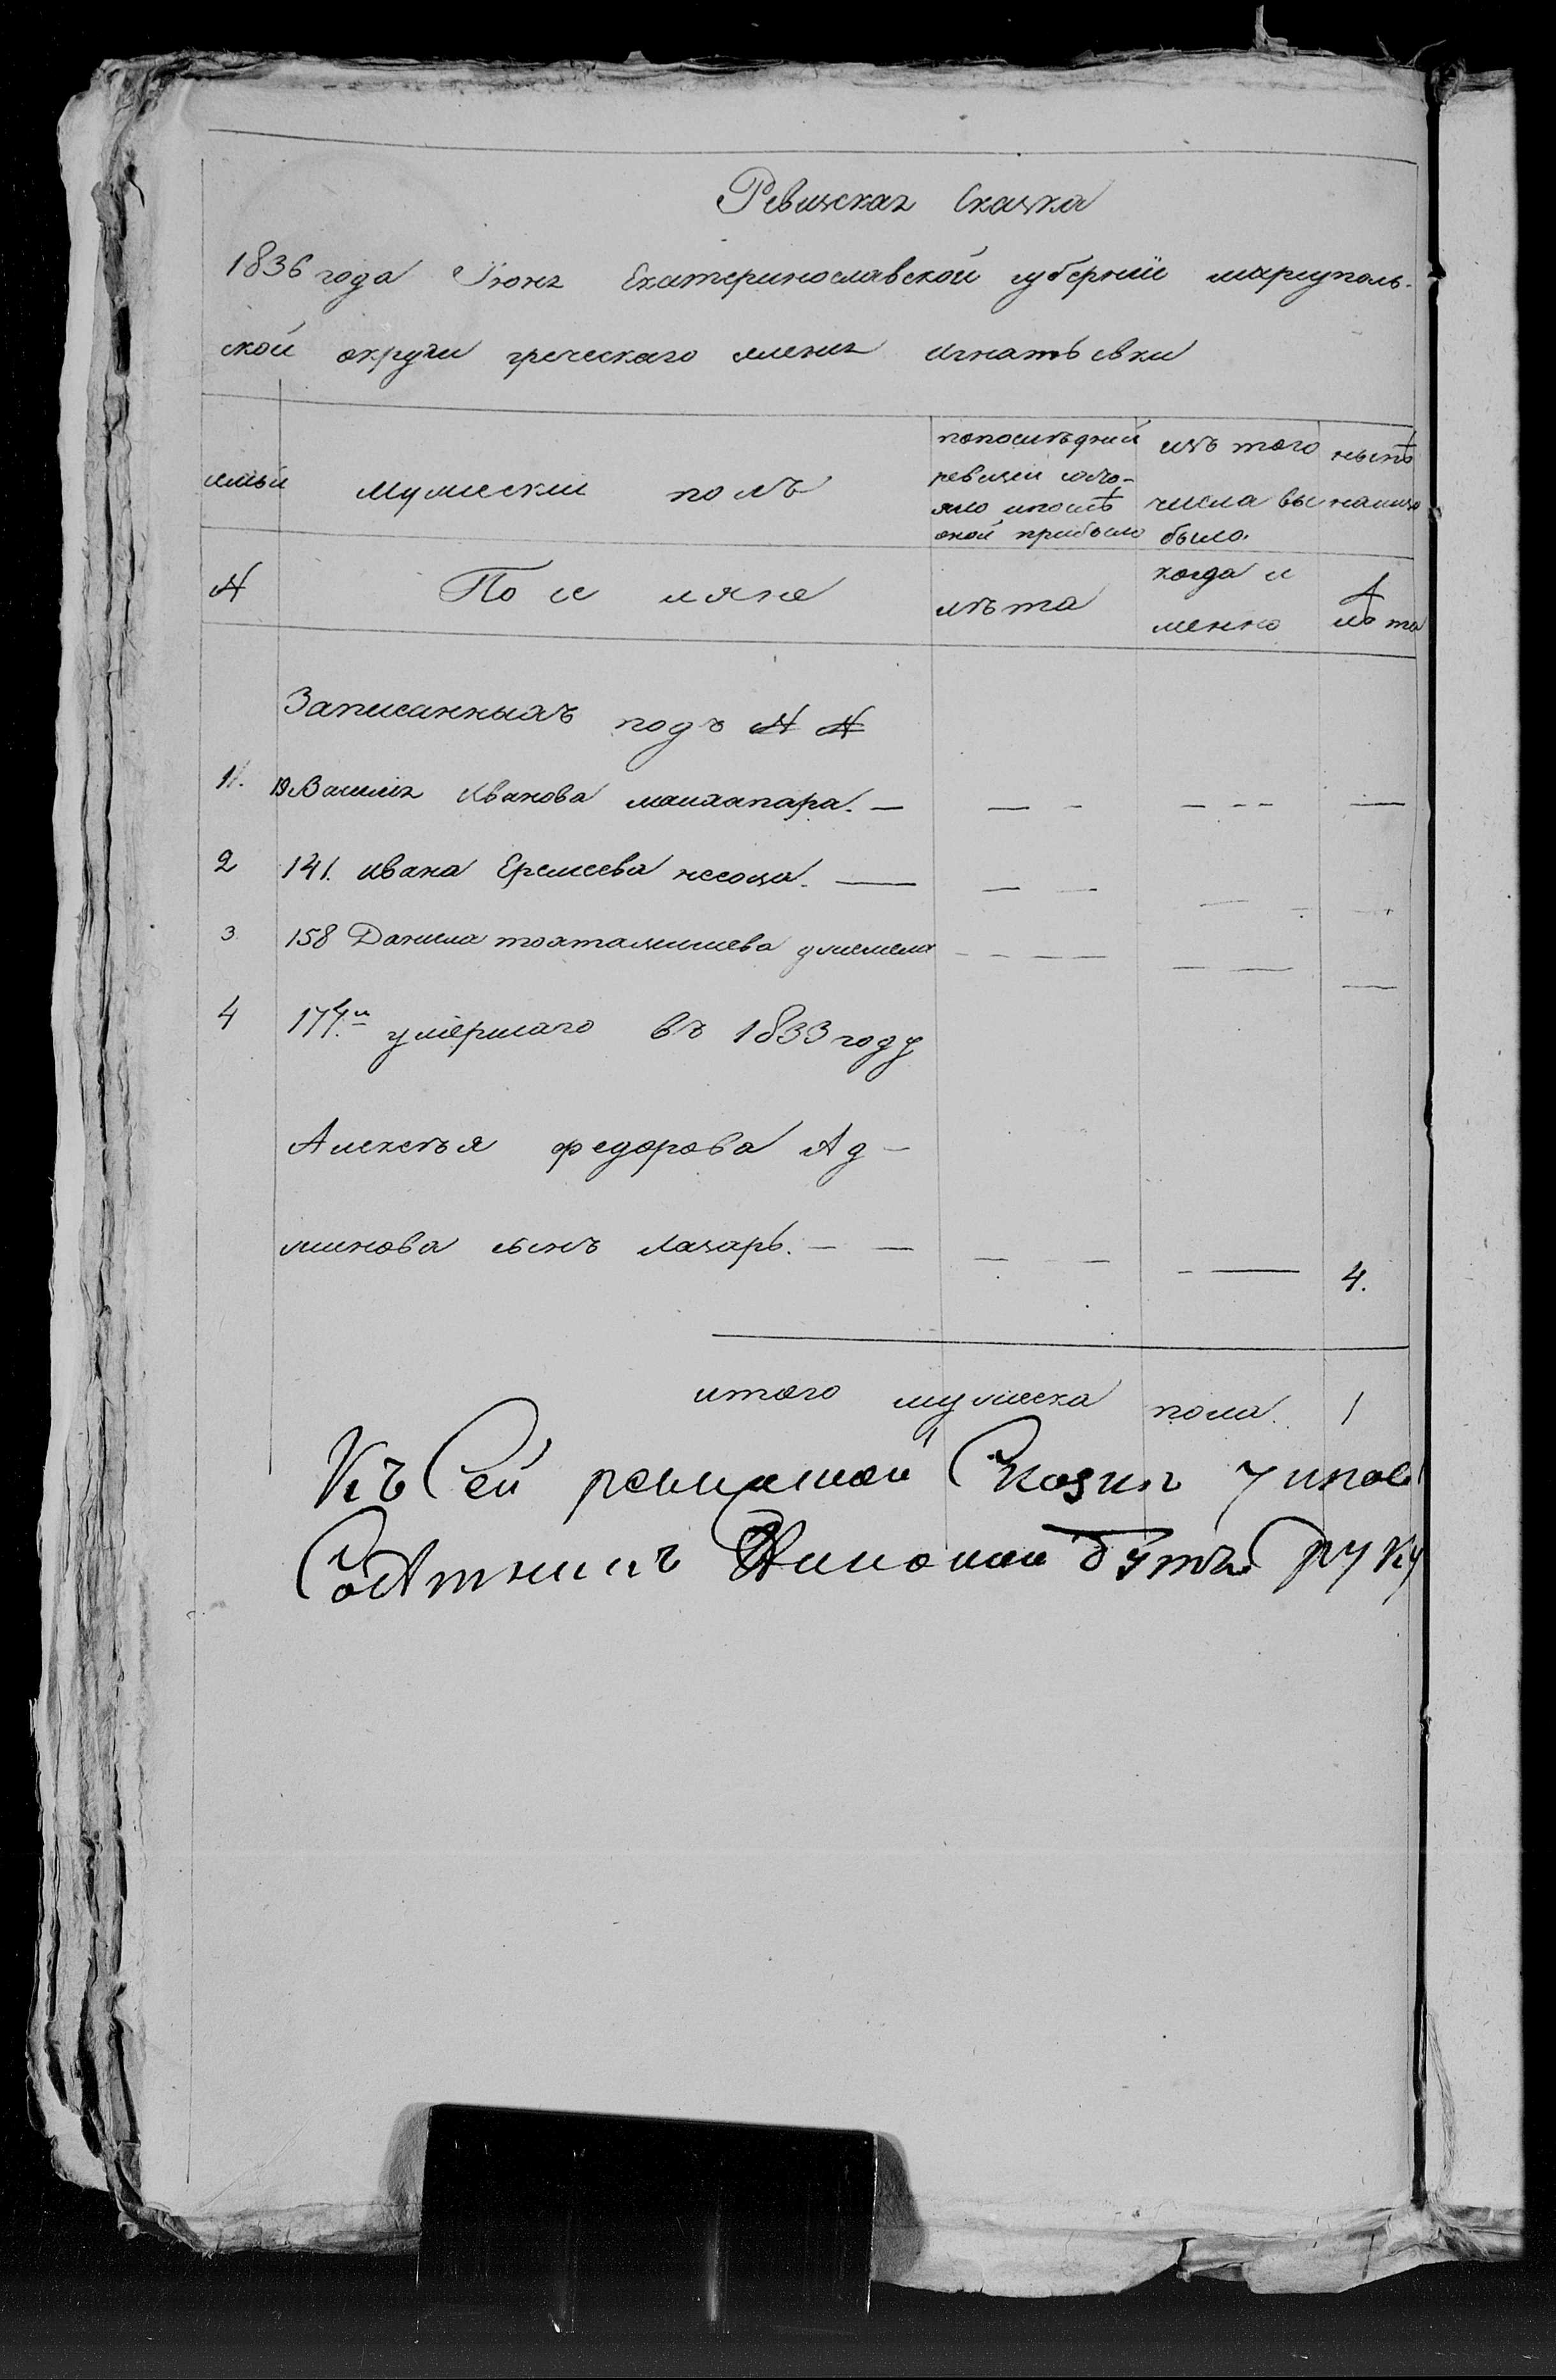 Ревизская Сказка
1836 года Июня Екатеринославской губернии мариуполь-
ской округи греческаго селения игнатьевки
семьи Мужеский полъ попоследней ревизии состо-яло ипосле оной прибыло изъ того числа вы было. ныне налицо
№ По се мяне лета когда и менно № лета
Записанныхъ подъ № №
1. 19 Василия Иванова
2 141. Ивана Еремеева
3 158 Данила тохтамишева
4 174.и умершаго въ 1833 году
Алексея федорова Ад-
жинова сынъ Лазарь. 4.
итого мужеска пола. 1
Къ Сей ревизской Сказки
руку